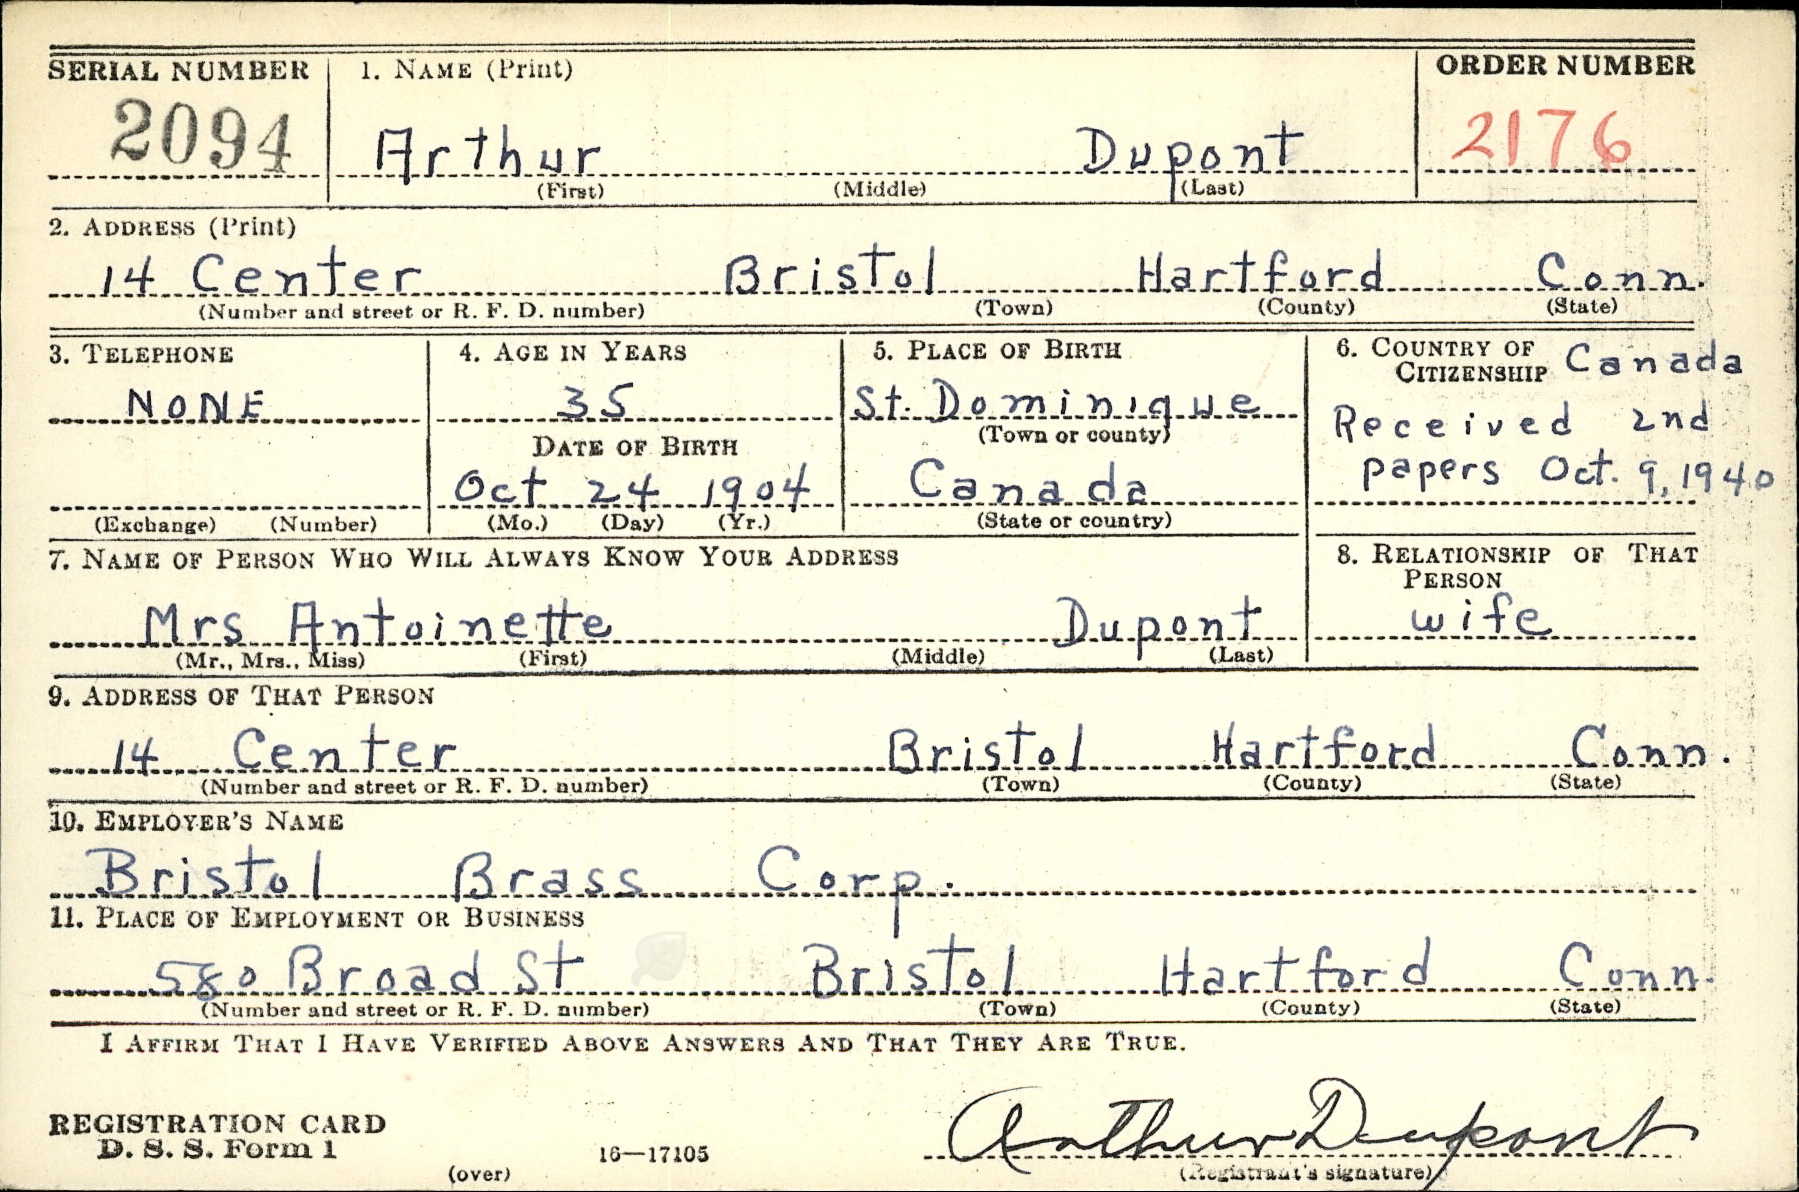 SERIAL NUMBER 1. NAME (Print) ORDER NUMBER
2094 Arthur Dupont 2176
(First) (Middle) (Last)
2. ADDRESS (Print)
14 Center Bristol Hartford Conn.
(Number and street or R. F. D. number) (Town) (County) (State)
3. TELEPHONE 4. AGE IN YEARS 5. PLACE OF BIRTH 6. COUNTRY OF CITIZENSHIP Canada
NONE 35 St. Dominique Received 2nd
DATE OF BIRTH (Town or county) papers Oct. 9, 1940
Oct 24 1904 Canada
(Exchange) (Number) (Mo.) (Day) (Yr.) (State or country)
7. NAME OF PERSON WHO WILL ALWAYS KNOW YOUR ADDRESS 8. RELATIONSHIP OF THAT PERSON
Mrs Antoinette Dupont wife
(Mr., Mrs., Miss) (First) (Middle) (Last)
9. ADDRESS OF THAT PERSON
14 Center Bristol Hartford Conn.
(Number and street or R. F. D. number) (Town) (County) (State)
10. EMPLOYER'S NAME
Bristol Brass Corp.
11. PLACE OF EMPLOYMENT OR BUSINESS
580 Broad St Bristol Hartford Conn.
(Number and street or R. F. D. number) (Town) (County) (State)
I AFFIRM THAT I HAVE VERIFIED ABOVE ANSWERS AND THAT THEY ARE TRUE.
REGISTRATION CARD
D. S. S. Form 1 16—17105 Arthur Dupont
(over) (Registrant's signature)